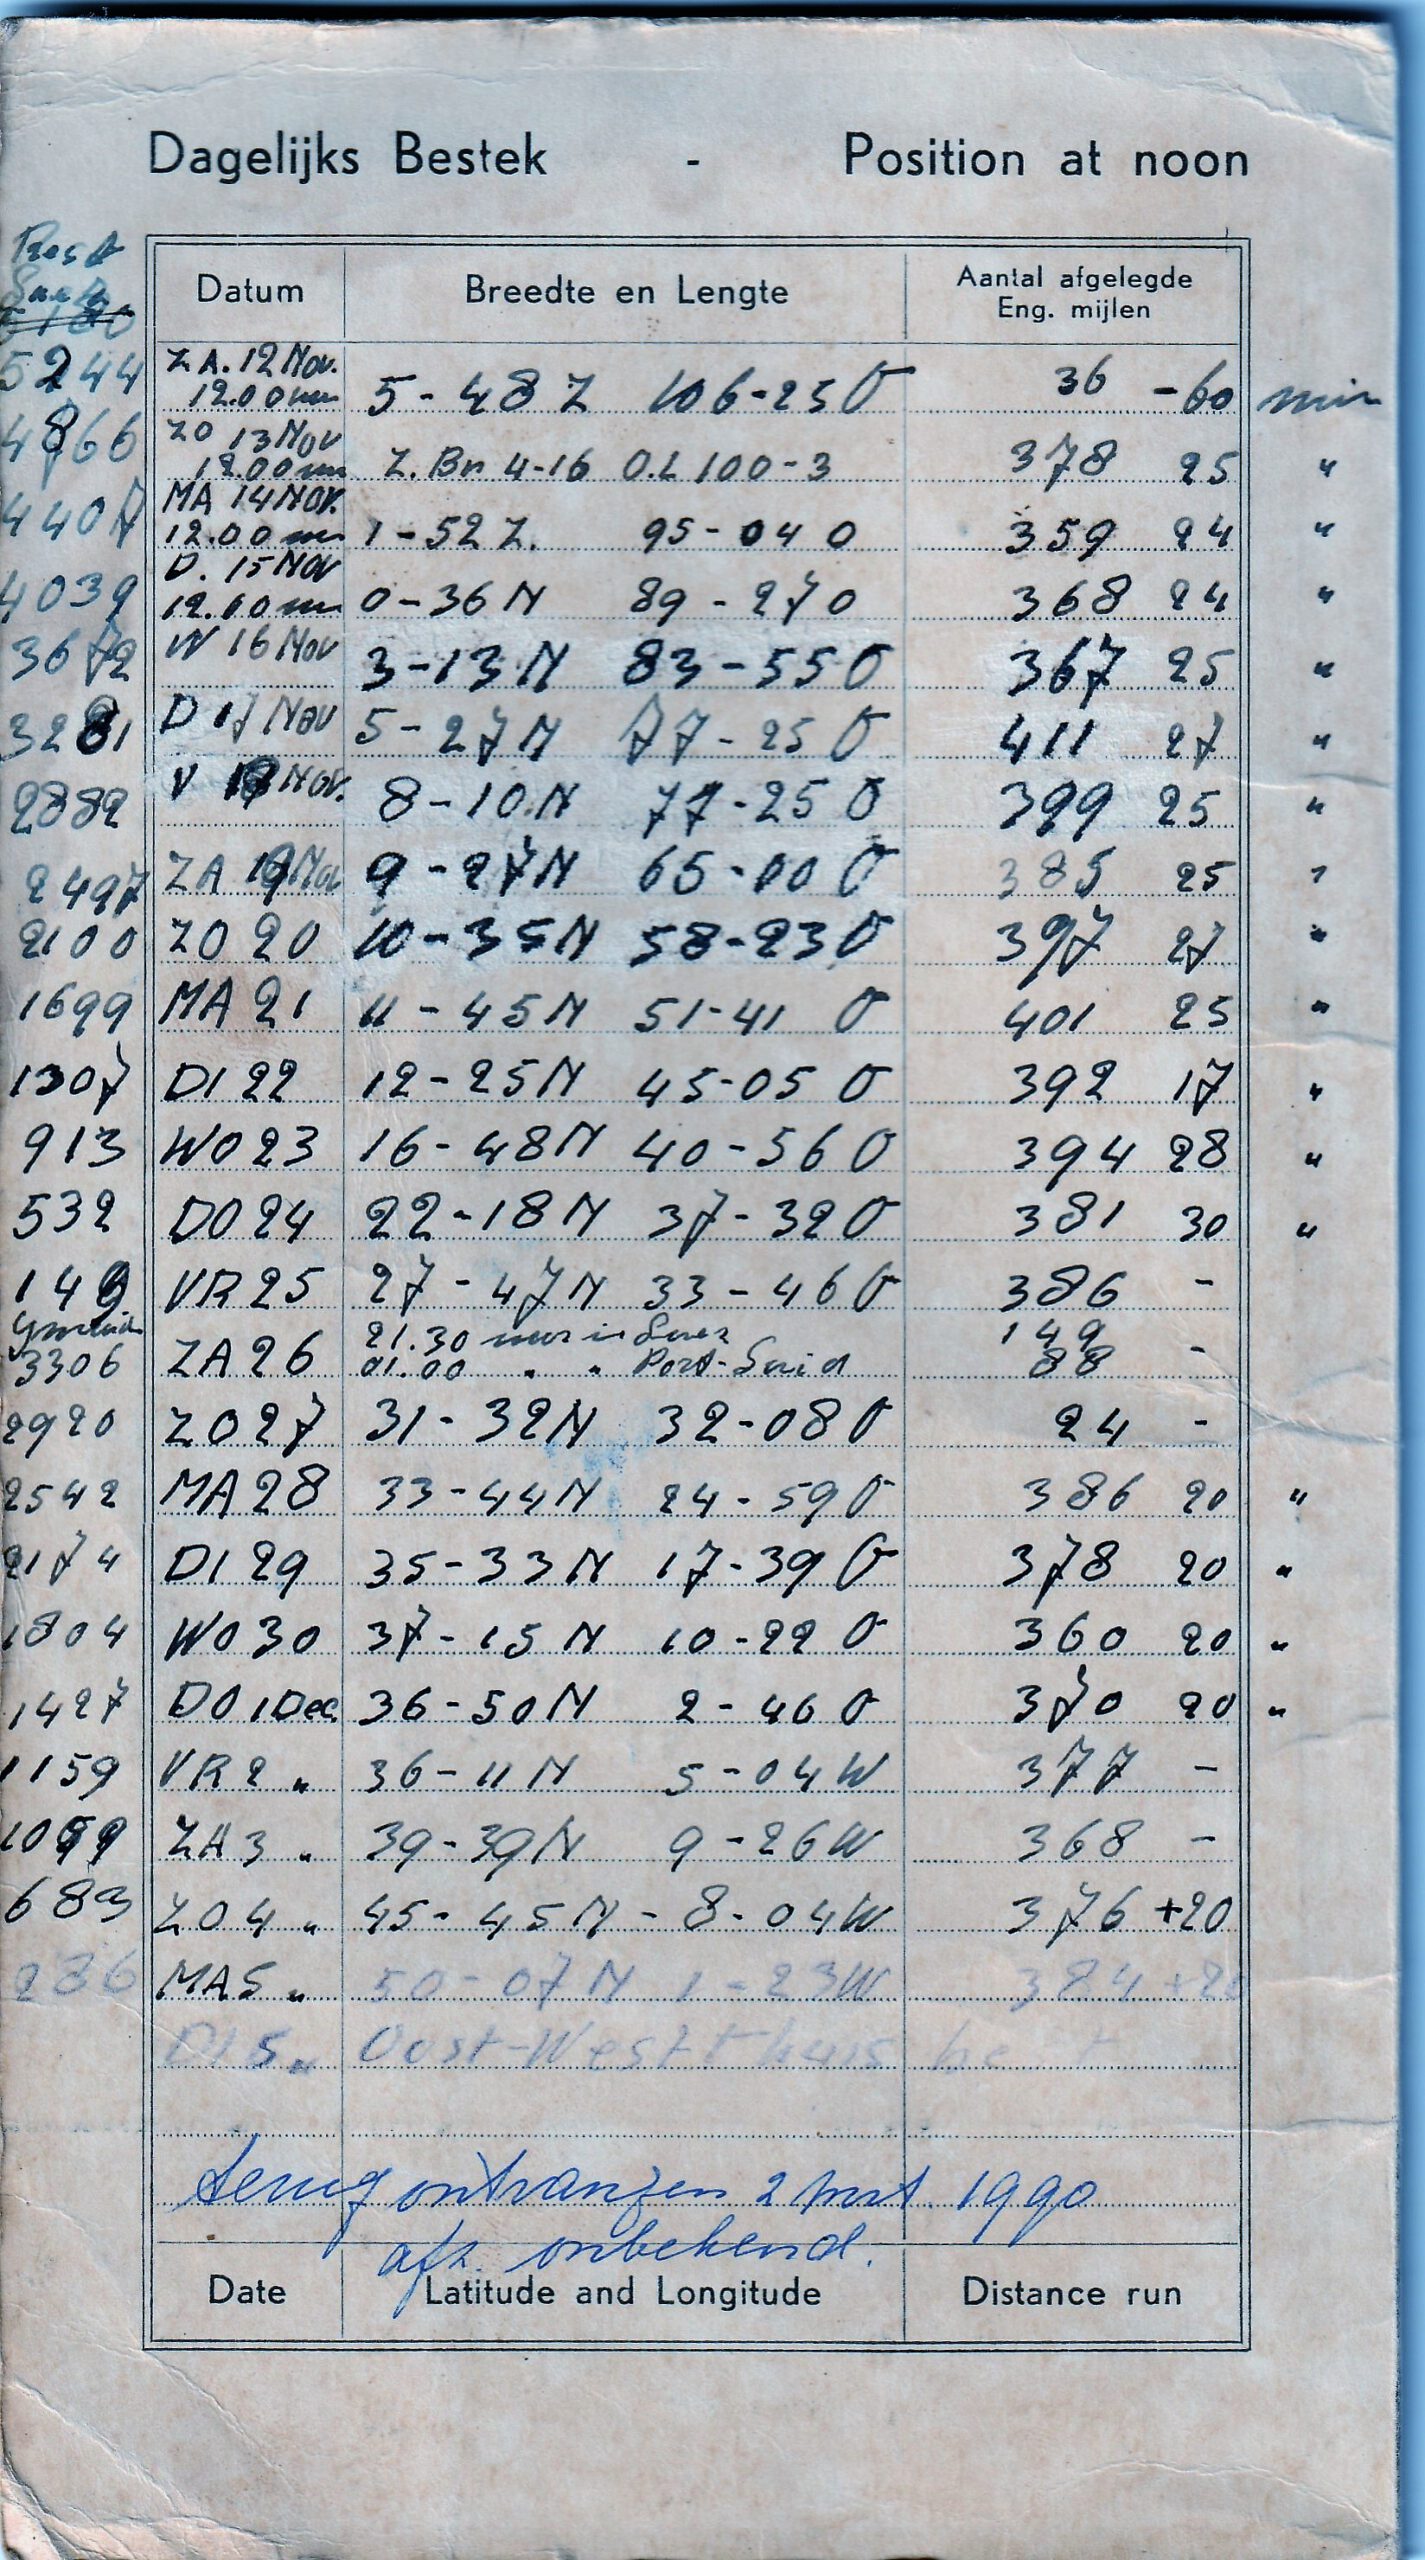 Dagelijks Bestek - Position at noon
Rest
Suez
5180
Datum Breedte en Lengte Aantal afgelegde Eng. mijlen
5244 ZA. 12 Nov. 12.00 uur 5-48 Z 106-25 O 36 -60 min
4866 ZO 13 Nov 12.00 uur Z. Br 4-16 O.L 100-3 378 25 "
4407 MA 14 Nov. 12.00 uur 1-52 Z. 95-04 O 359 24 "
4039 D. 15 Nov 12.00 uur 0-36 N 89-27 O 368 24 "
3672 W 16 Nov 3-13 N 83-55 O 367 25 "
3281 D 17 Nov 5-27 N 77-25 O 411 27 "
2882 V 18 Nov. 8-10 N 77-25 O 399 25 "
2497 ZA 19 Nov 9-27 N 65-00 O 385 25 "
2100 ZO 20 10-35 N 58-23 O 397 27 "
1699 MA 21 11-45 N 51-41 O 401 25 "
1307 DI 22 12-25 N 45-05 O 392 17 "
913 WO 23 16-48 N 40-56 O 394 28 "
532 DO 24 22-18 N 37-32 O 381 30 "
149 VR 25 27-47 N 33-46 O 386 -
21.30 uur in Suez 149
3306 ZA 26 01.00 " " Port-Said 88 -
2920 ZO 27 31-32 N 32-08 O 24 -
2542 MA 28 33-44 N 24-59 O 386 20 "
2174 DI 29 35-33 N 17-39 O 378 20 "
1804 WO 30 37-15 N 10-22 O 360 20 "
1427 DO 1 Dec. 36-50 N 2-46 O 370 20 "
1159 VR 2 " 36-11 N 5-04 W 377 -
1099 ZA 3 " 39-39 N 9-26 W 368 -
683 ZO 4 " 45-45 N - 8-04 W 376 +20
236 MA 5 " 50-07 N 1-23 W 384 +20
DI 5 " Oost-West thuis best
terug ontvangen 2 mrt. 1990
afz. onbekend.
Date Latitude and Longitude Distance run